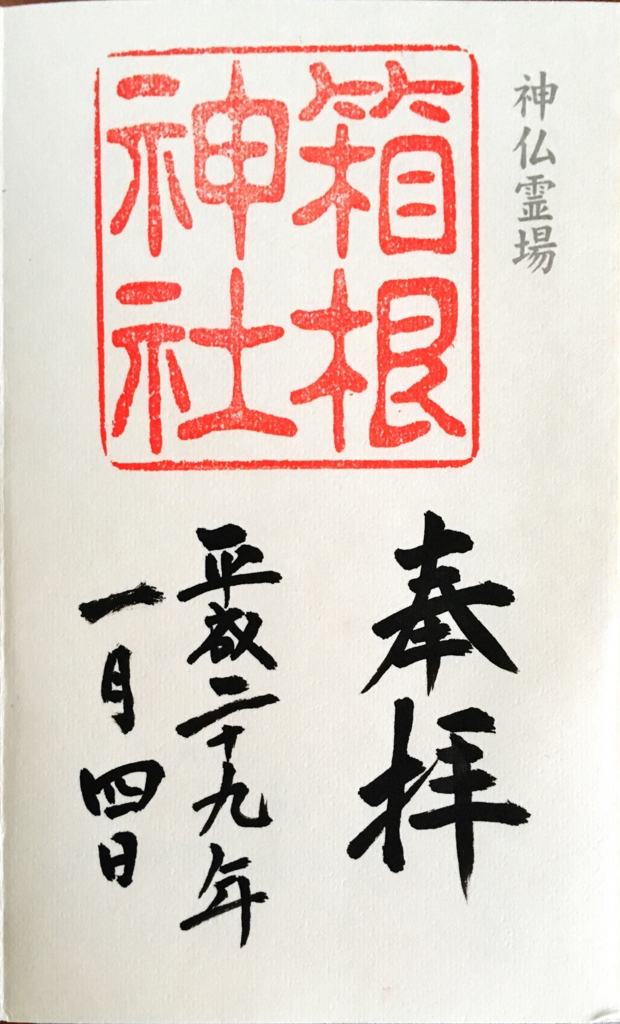 神仏霊場
箱根
神社
奉拝
平成二十九年
一月四日